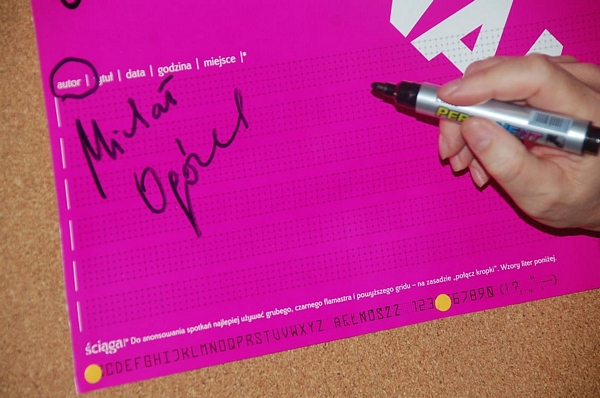 A.
autor | tytuł | data | godzina | miejsce |*
Miłaś
Ogórek
PERMANENT
ściąga* Do anonsowania spotkań najlepiej używać grubego, czarnego flamastra i powyższego gridu – na zasadzie „połącz kropki”. Wzory liter poniżej.
CDEFGHIJKLMNOPRSTUVWXYZ ĄĘŁŃÓŚŹŻ 123 67890 (!?,.„”—)